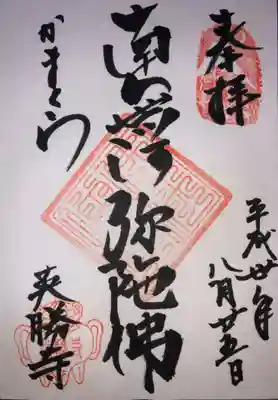 奉拝
平成廿年
八月廿五日
南無阿弥陀佛
かまくら
英勝寺